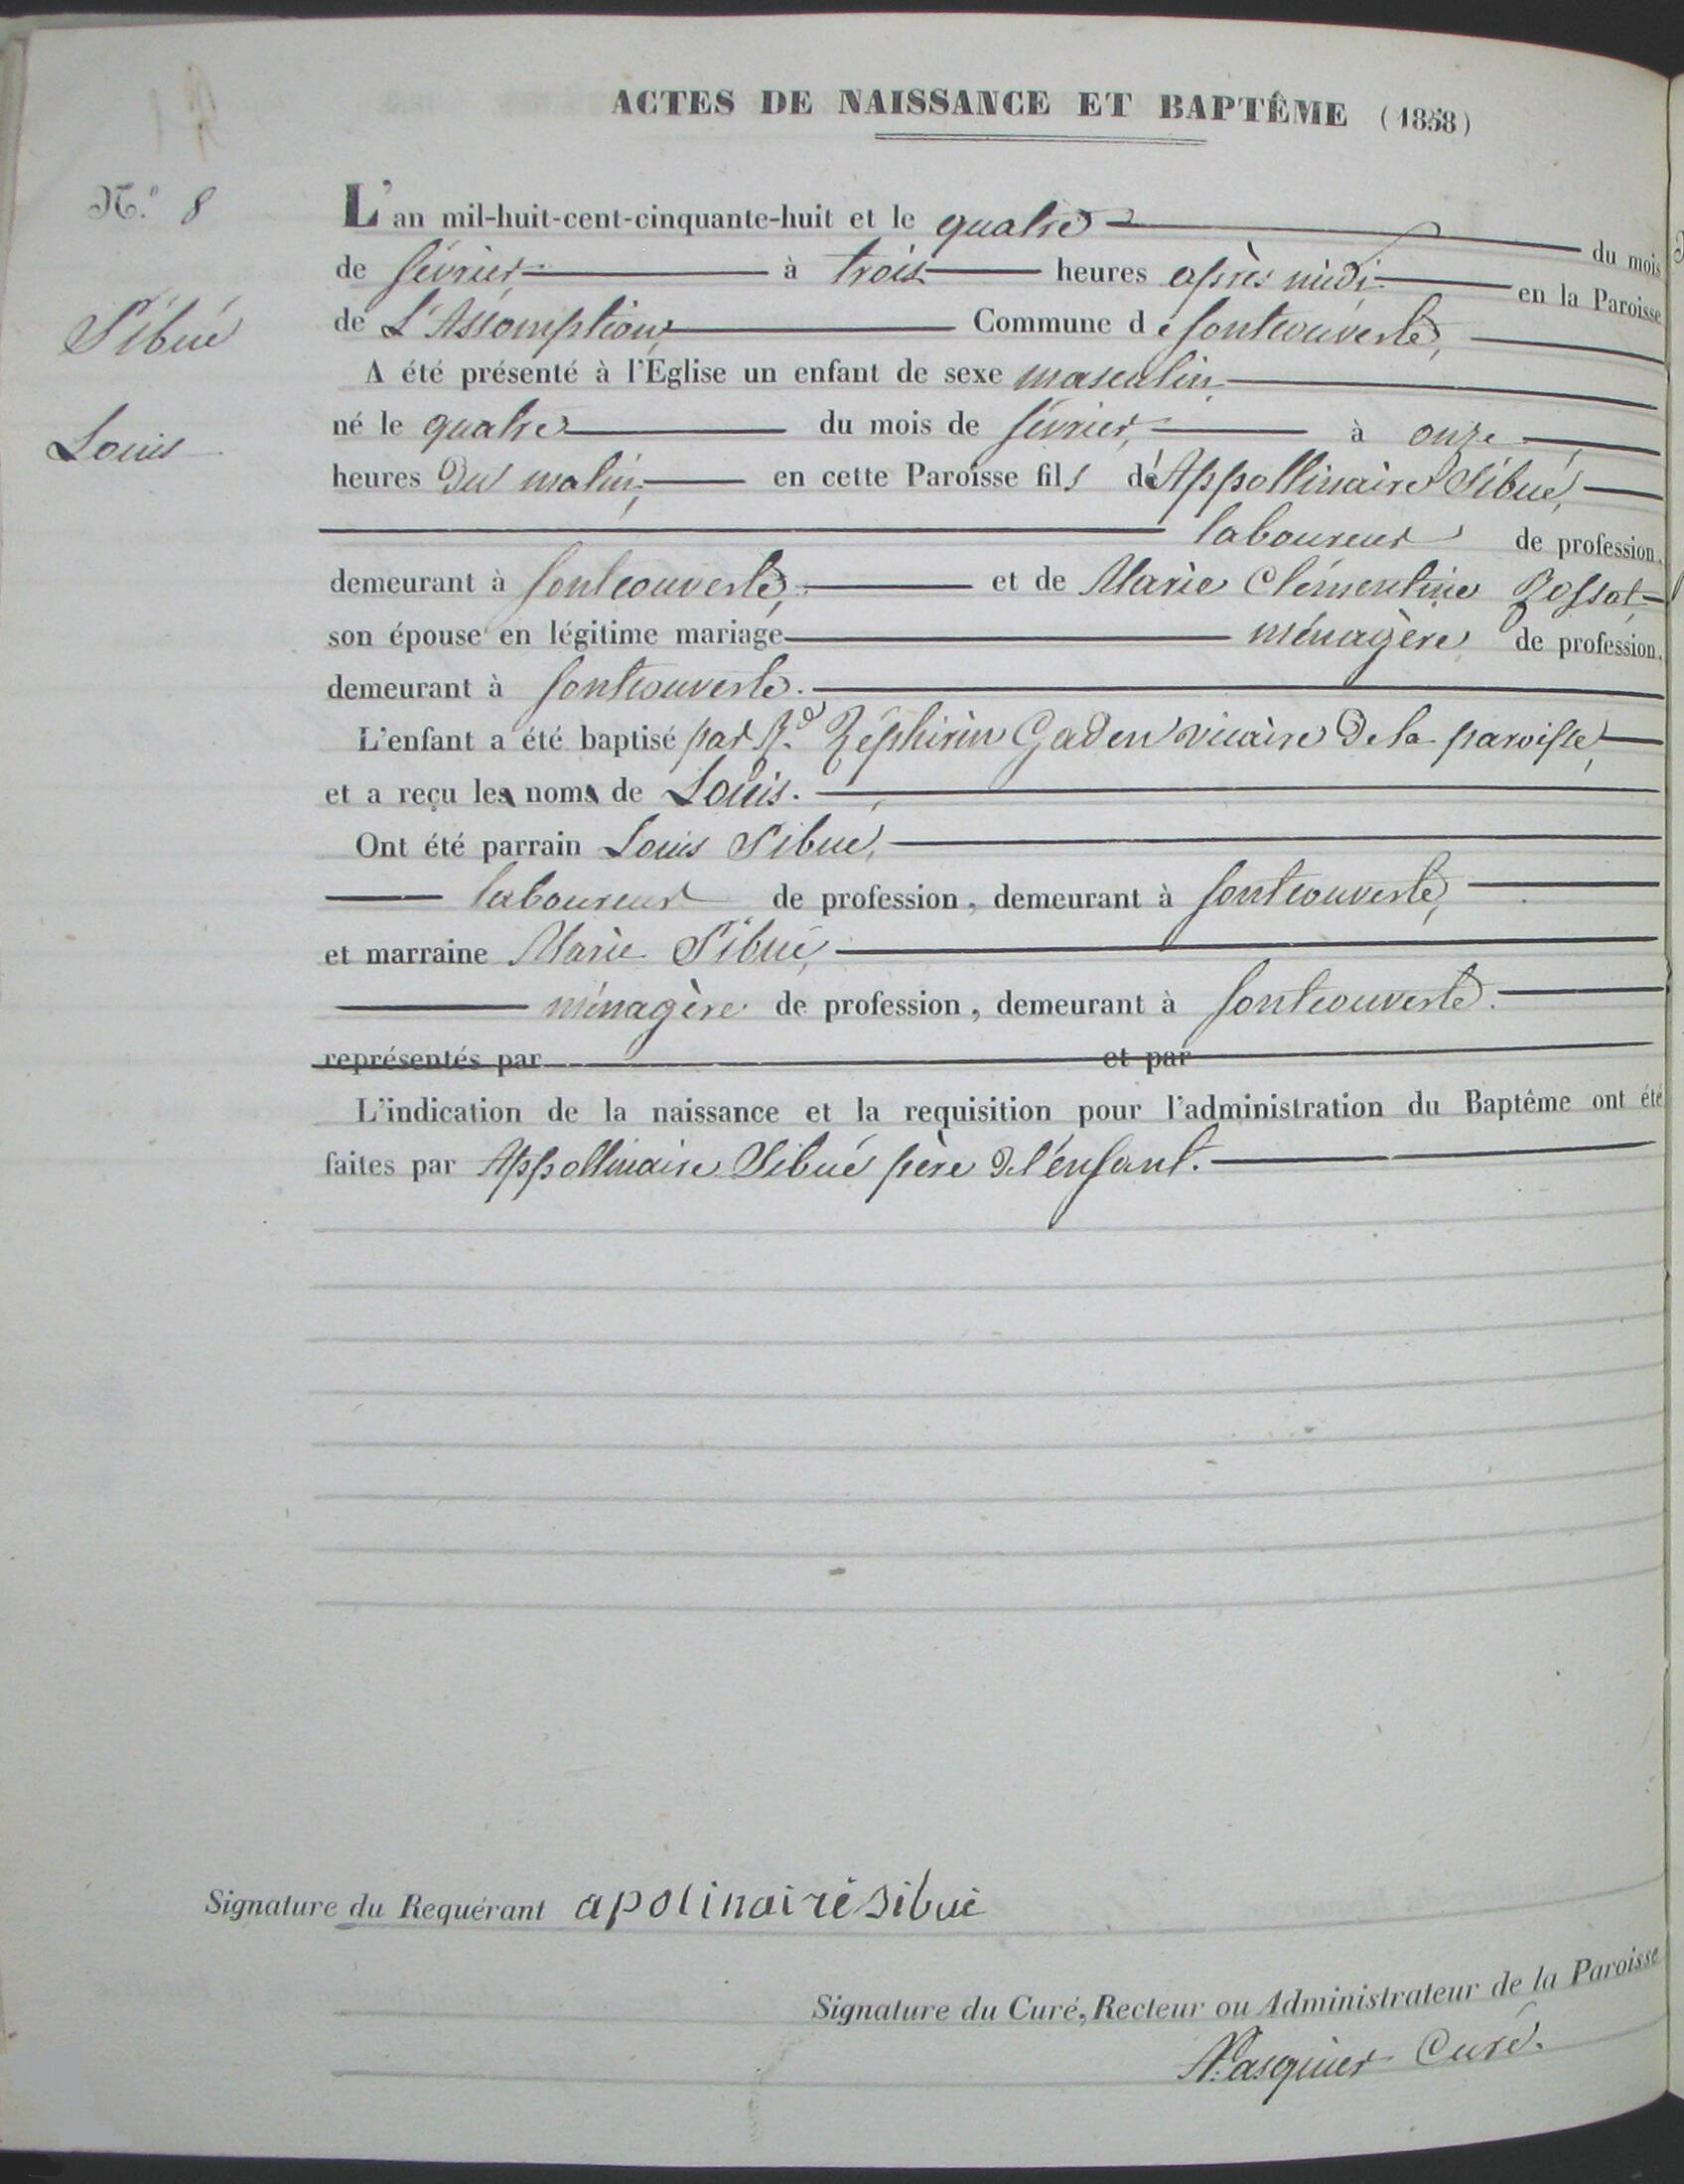 ACTES DE NAISSANCE ET BAPTÊME (1858)
N.º 8
L'an mil-huit-cent-cinquante-huit et le quatre du mois
de février, à trois heures après midi en la Paroisse
Sibué
de L'Assomption, Commune de fontcouverte,
A été présenté à l'Église un enfant de sexe masculin,
Louis
né le quatre du mois de février, à onze
heures du matin, en cette Paroisse fils de Appollinaire Sibué,
laboureur de profession,
demeurant à fontcouverte, et de Marie Clémentine Bossat
son épouse en légitime mariage ménagère de profession,
demeurant à fontcouverte.
L'enfant a été baptisé par R.d Zéphirin Gaden vicaire de la paroisse,
et a reçu les noms de Louis.
Ont été parrain Louis Sibué,
laboureur de profession, demeurant à fontcouverte,
et marraine Marie Sibué,
ménagère de profession, demeurant à fontcouverte.
représentés par et par
L'indication de la naissance et la requisition pour l'administration du Baptême ont été
faites par Appollinaire Sibué père de l'enfant.
Signature du Requérant apolinaire sibué
Signature du Curé, Recteur ou Administrateur de la Paroisse
Pasquier Curé.